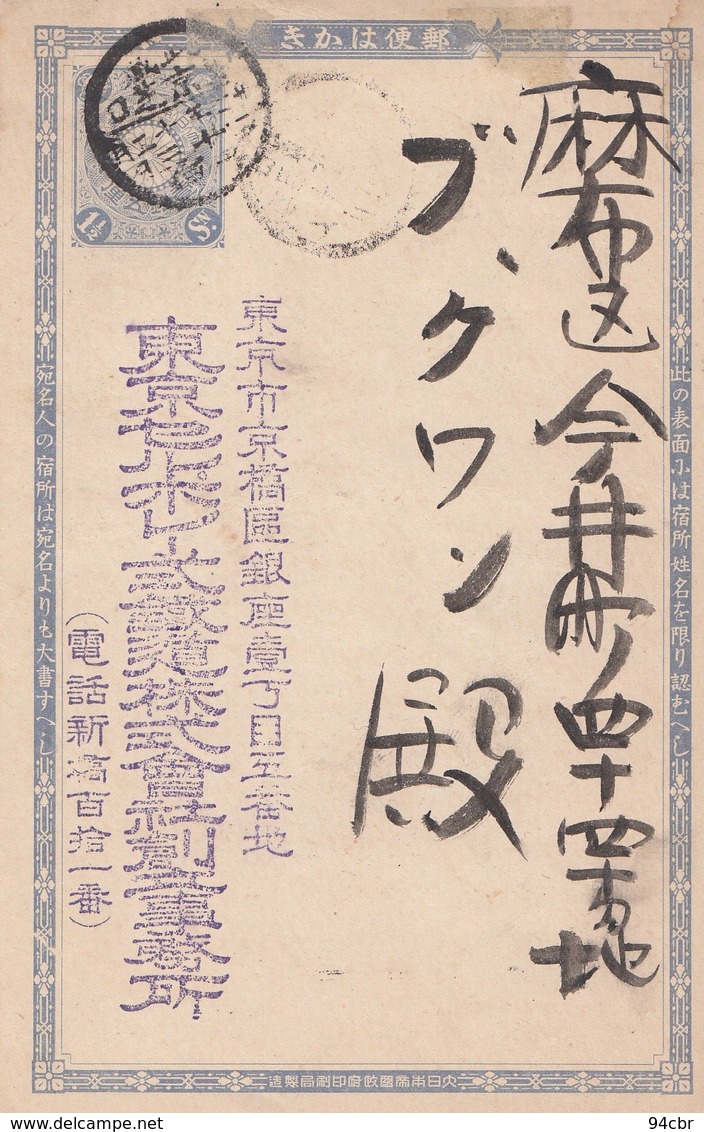 郵便はかき
麻布区今井町四十四番地
ブ、クワン殿
東京市京橋區銀座壹丁目五番地
東京セルポレー式鐵道株式會社創立事務所
(電話新拾百拾一番)
此の表面には宿所姓名を限り認むへし
宛名人の宿所は宛名よりも大書すへし
1½ Sn
大日本帝國政府印刷局製造
www.delcampe.net
94cbr